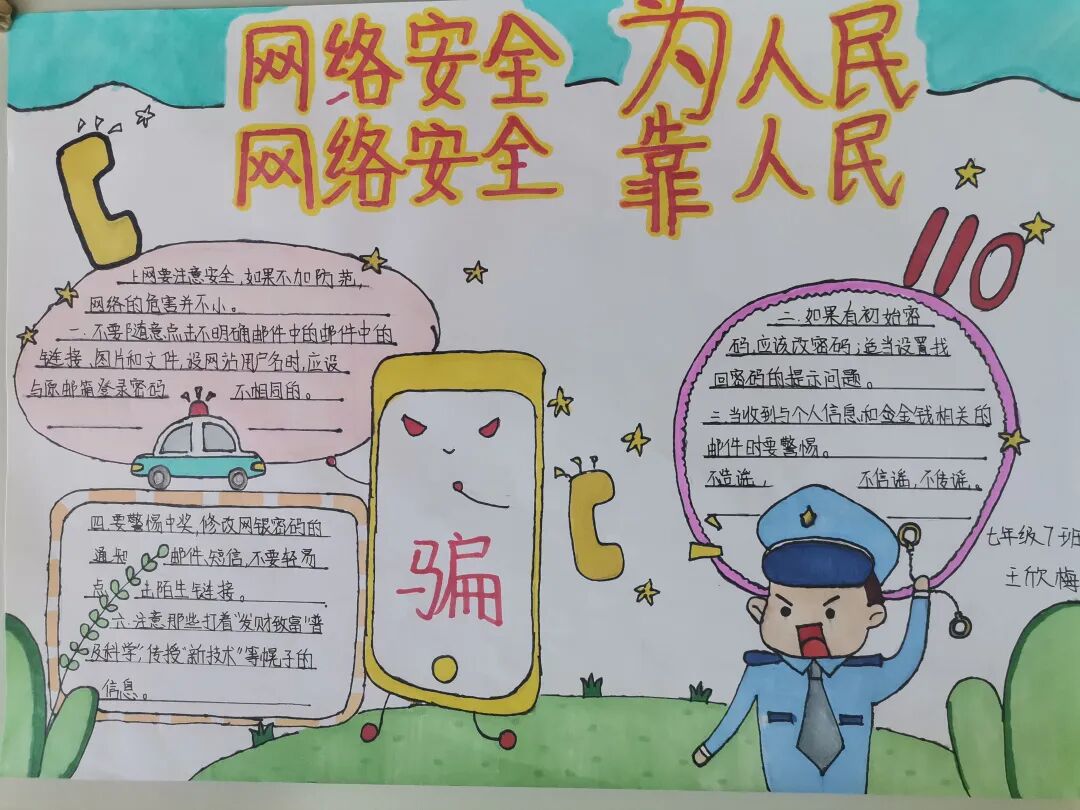 网络安全 为人民
网络安全 靠人民
110
上网要注意安全,如果不加防范,
网络的危害并不小。
一.不要随意点击不明确邮件中的邮件中的
链接、图片和文件,设网站用户名时,应设
与原邮箱登录密码 不相同的。
二.如果有初始密
码,应该改密码;适当设置找
回密码的提示问题。
三.当收到与个人信息和金金钱相关的
邮件时要警惕。
不造谣, 不信谣,不传谣。
四.要警惕中奖,修改网银密码的
通知 邮件、短信,不要轻易
点 击陌生链接。
六.注意那些打着“发财致富”普
及科学”,传授“新技术”等幌子的
信息。
骗
七年级7班
王欣梅